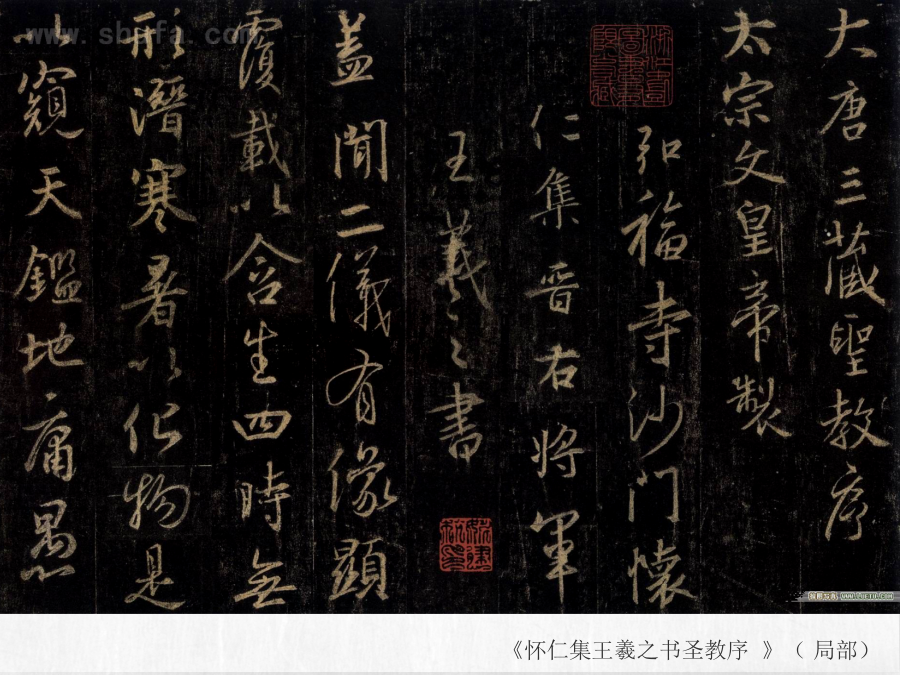 大唐三藏聖教序
太宗文皇帝製
弘福寺沙門懷
仁集晉右將軍
王羲之書
蓋聞二儀有像顯
覆載以含生四時無
形潛寒暑以化物是
以窺天鑑地庸愚
《怀仁集王羲之书圣教序 》（ 局部）